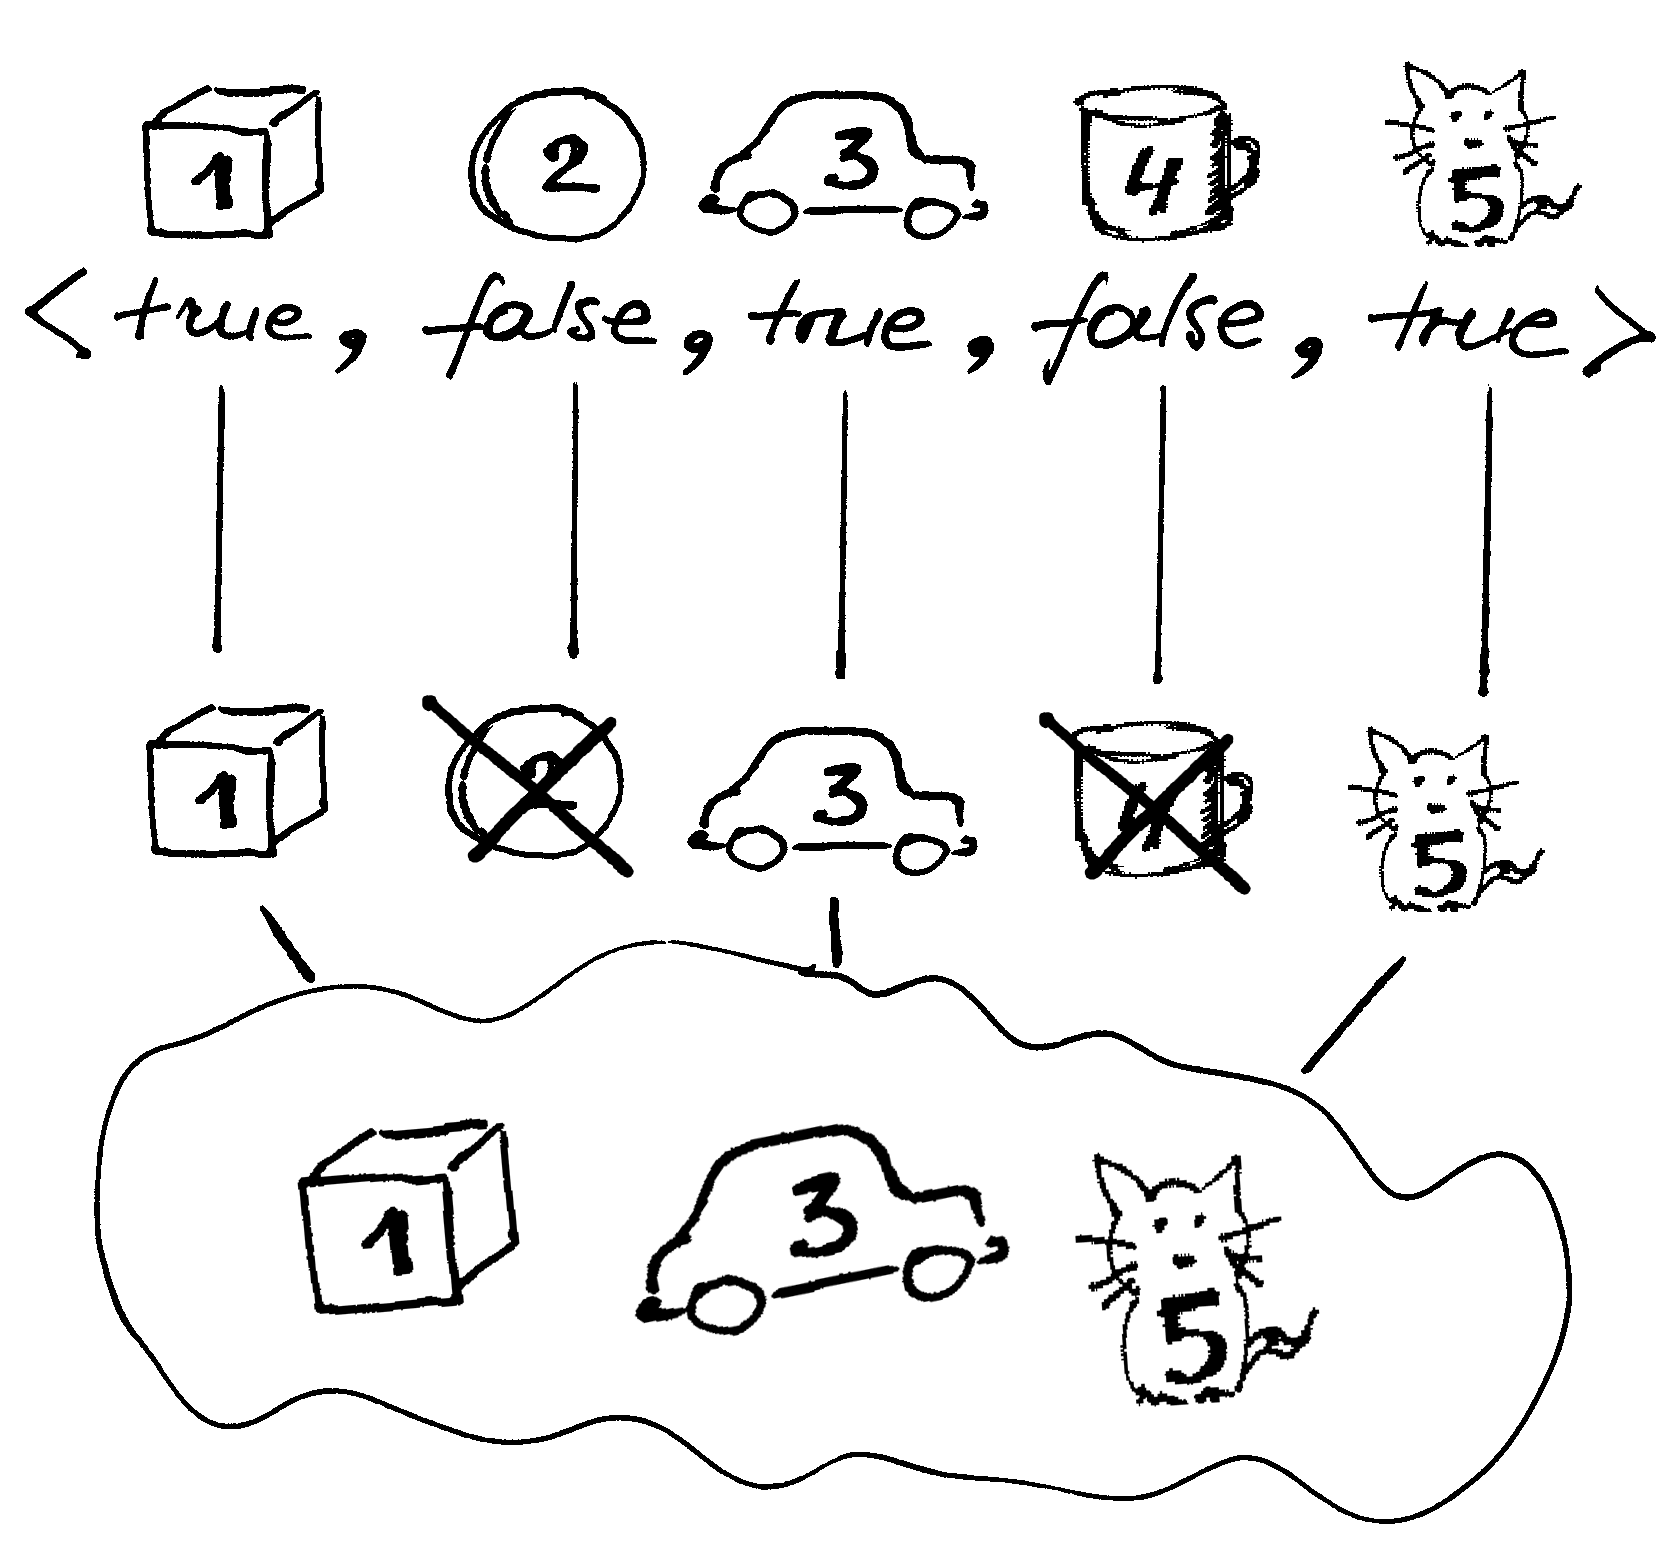 1 2 3 4 5
< true, false, true, false, true >
1 2 3 4 5
1 3 5